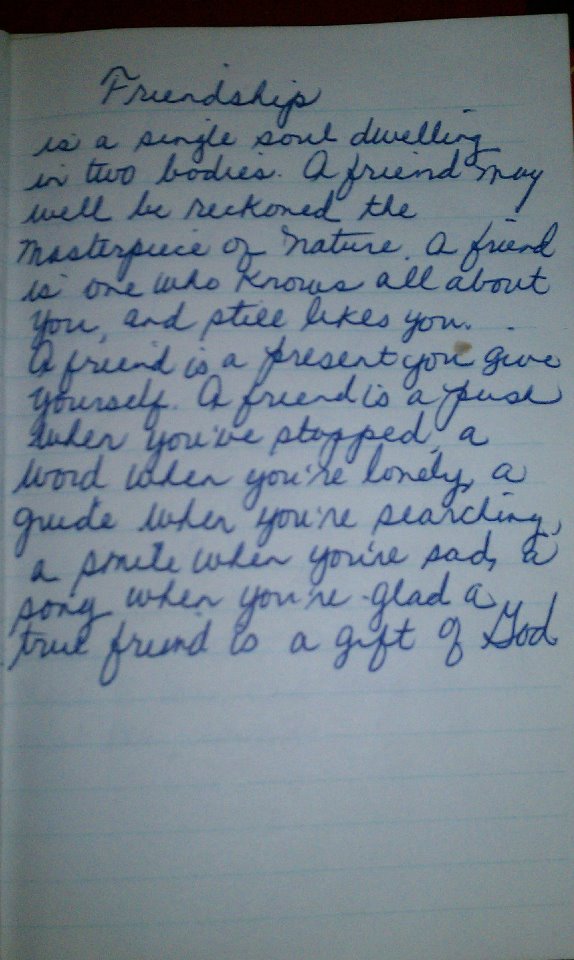 Friendship
is a single soul dwelling
in two bodies. A friend may
well be reckoned the
Masterpiece of Nature. A friend
is one who knows all about
you, and still likes you.
A friend is a present you give
yourself. A friend is a push
when you've stopped, a
word when you're lonely, a
guide when you're searching,
a smile when you're sad, a
song when you're glad a
true friend is a gift of God